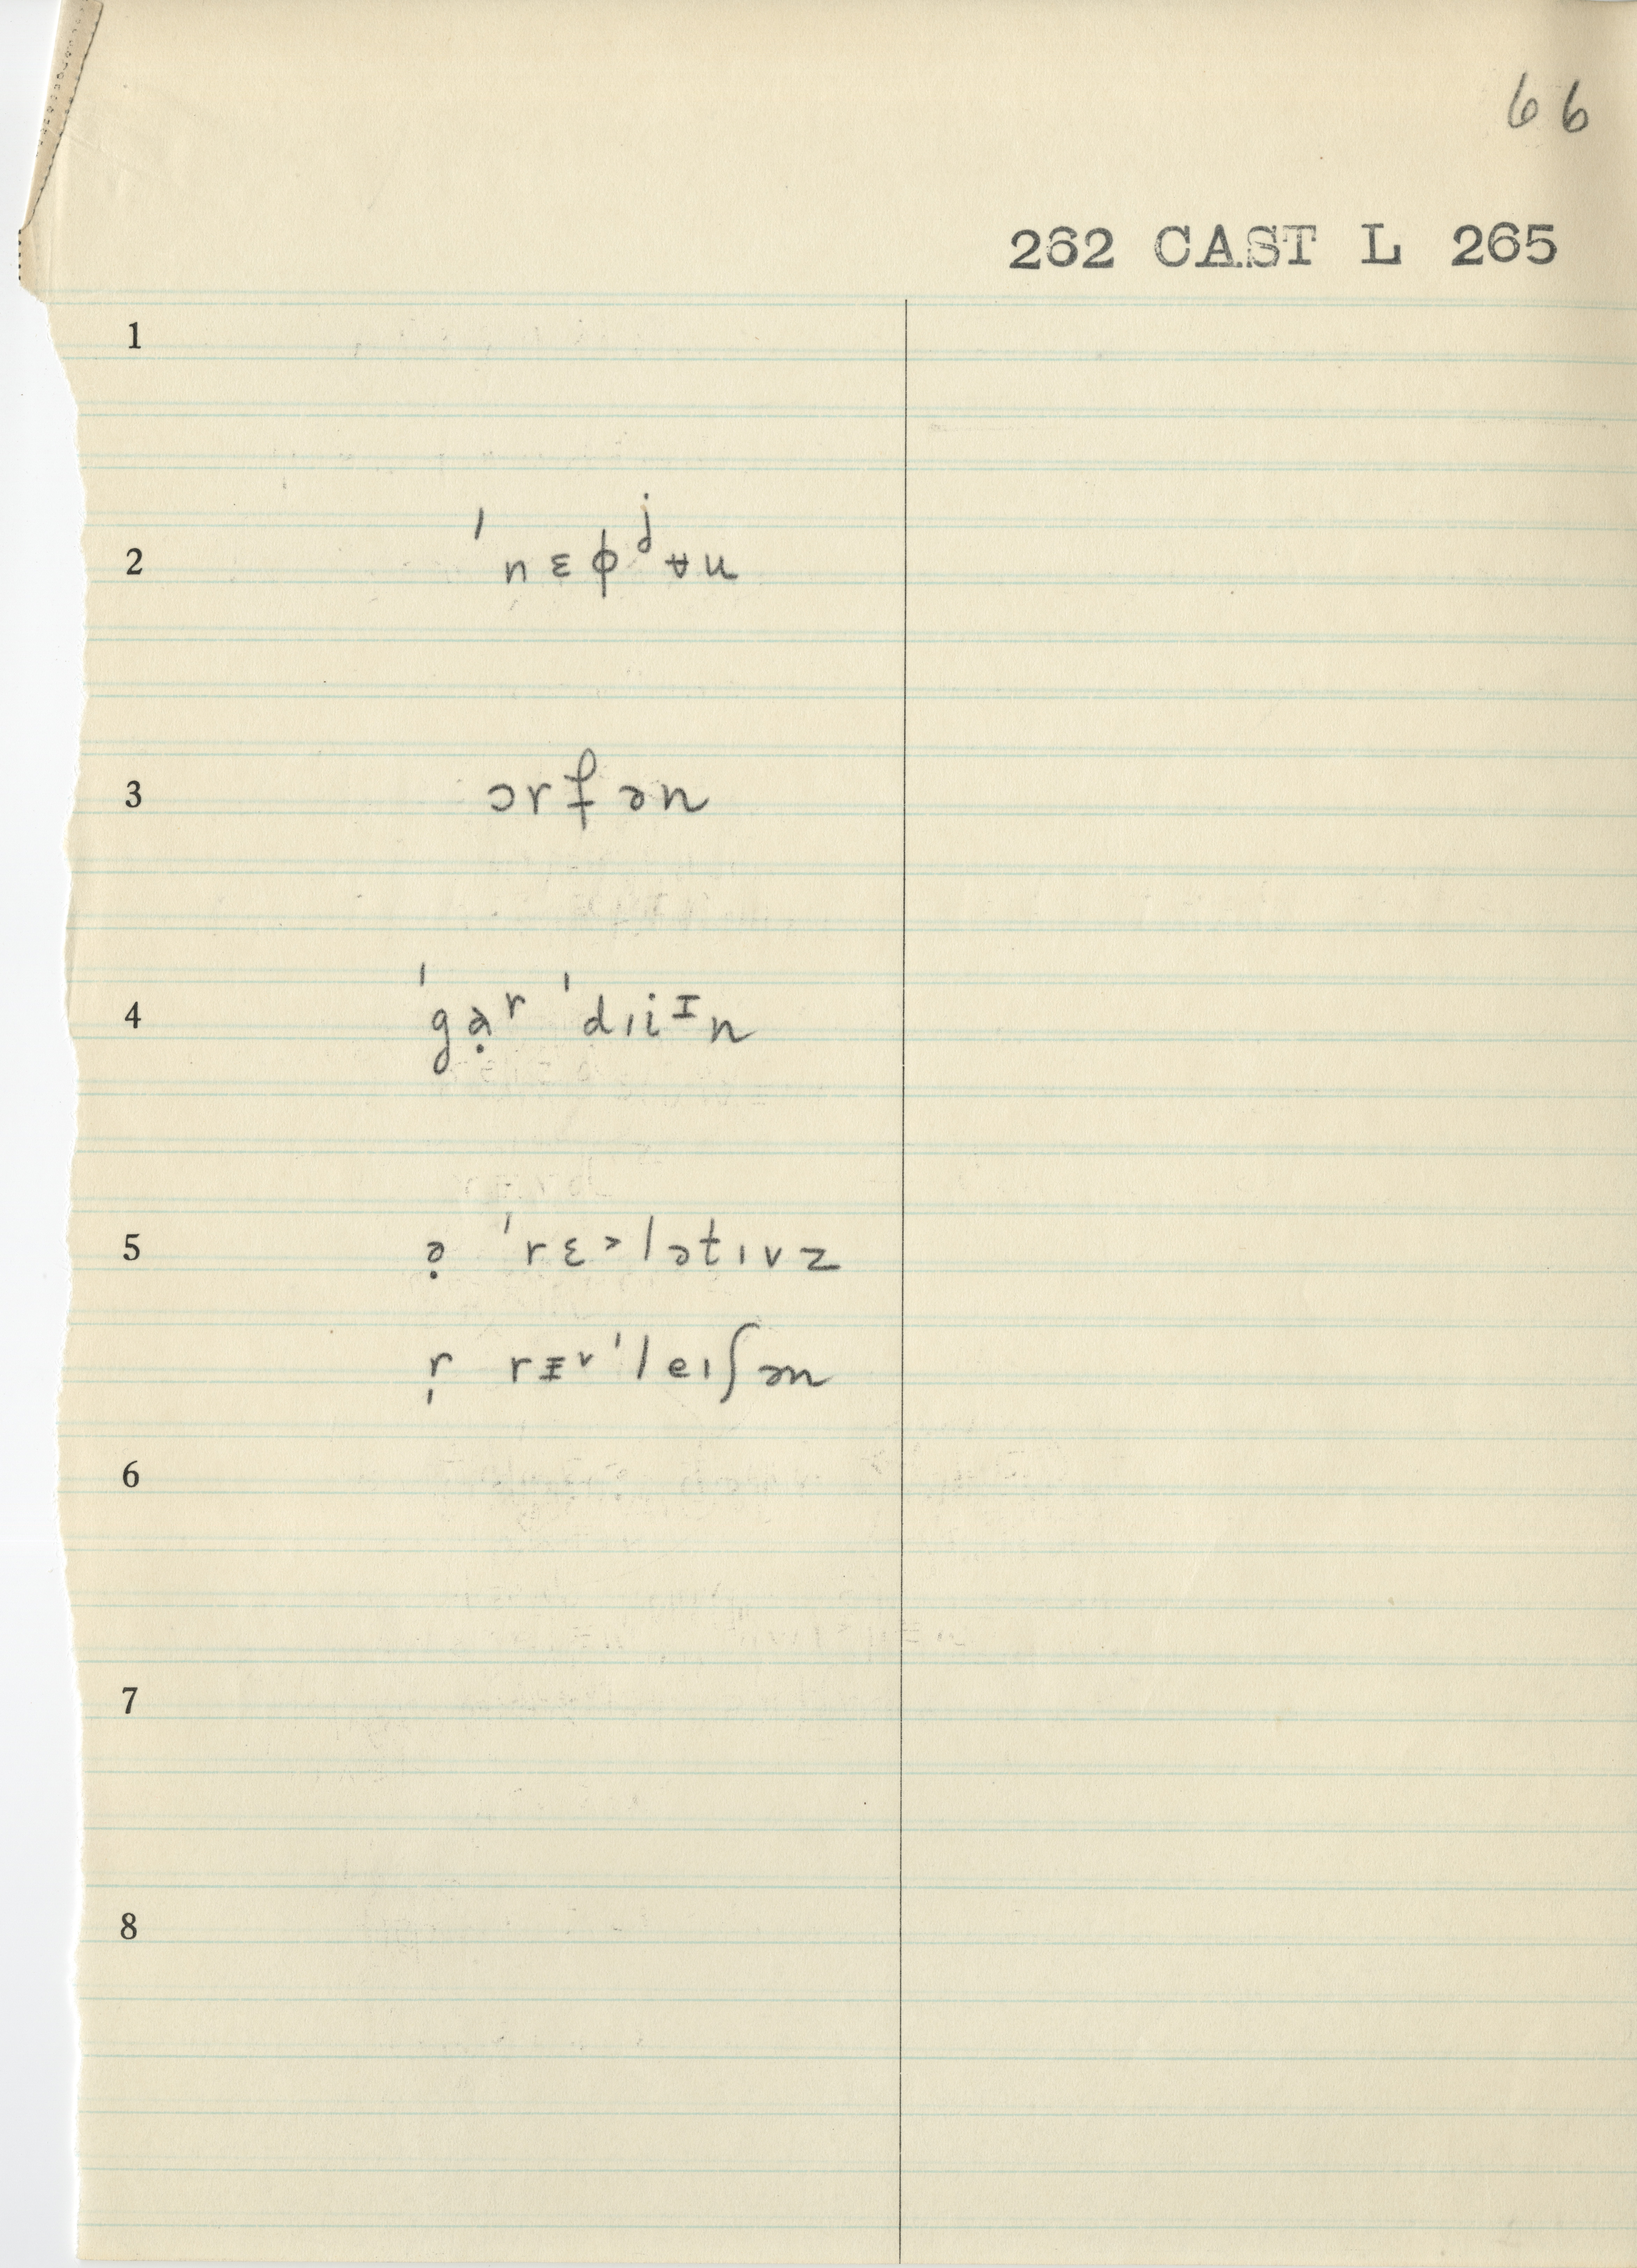 66
262 CAST L 265
1
2 ˈnɛɸʲʉu
3 ɔrf̵ən
4 ˈgạʳ ˈdɪiᶦn
5 ə̣ ˈrɛ˃lətɪvz
r̩ rᵻ˅ˈleɪʃən
6
7
8